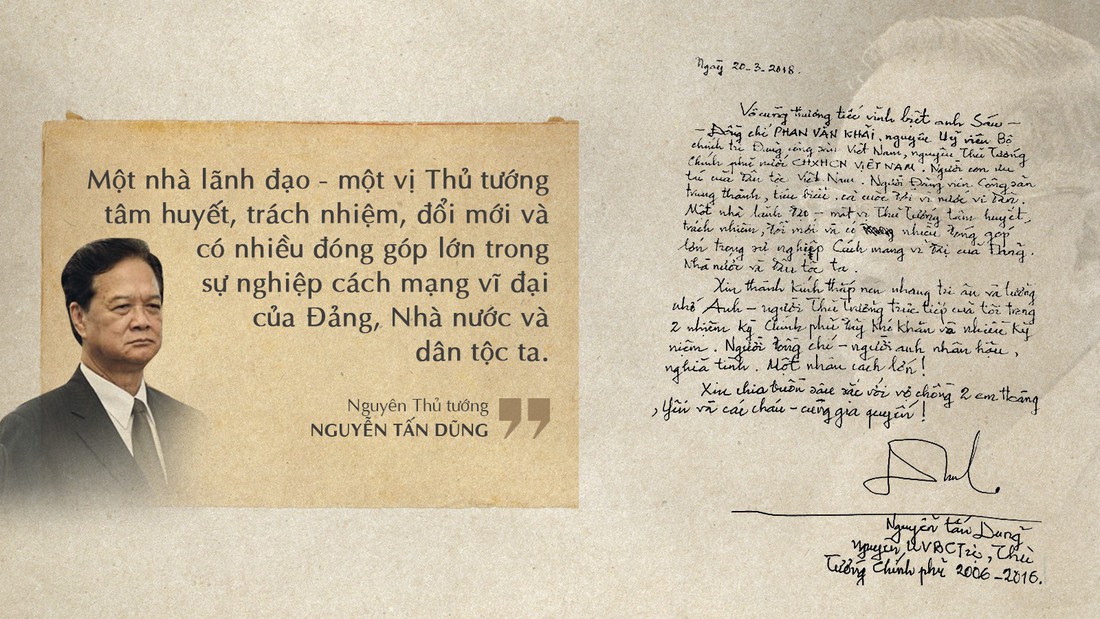 Một nhà lãnh đạo - một vị Thủ tướng
tâm huyết, trách nhiệm, đổi mới và
có nhiều đóng góp lớn trong
sự nghiệp cách mạng vĩ đại
của Đảng, Nhà nước và
dân tộc ta.
Nguyên Thủ tướng
NGUYỄN TẤN DŨNG
Ngày 20-3-2018.
Vô cùng thương tiếc vĩnh biệt anh Sáu -
- Đồng chí PHAN VĂN KHẢI, nguyên Uỷ viên Bộ
chính trị Đảng cộng sản Việt Nam, nguyên Thủ Tướng
Chính phủ nước CHXHCN VIỆT NAM. Người con ưu
tú của dân tộc Việt Nam. Người Đảng viên Cộng sản
trung thành, tiêu biểu, cả cuộc đời vì nước vì dân.
Một nhà lãnh đạo - một vị Thủ Tướng tâm huyết,
trách nhiệm, đổi mới và có nhiều đóng góp
lớn trong sự nghiệp Cách mạng vĩ đại của Đảng.
Nhà nước và dân tộc ta.
Xin thành kính thắp nén nhang tri ân và tưởng
nhớ Anh - người Thủ trưởng trực tiếp của tôi trong
2 nhiệm kỳ Chính phủ đầy khó khăn và nhiều kỷ
niệm. Người đồng chí - người anh nhân hậu,
nghĩa tình. Một nhân cách lớn!
Xin chia buồn sâu sắc với vợ chồng 2 em Hoàng
, Yến và các cháu - cùng gia quyến!
Nguyễn Tấn Dũng
Nguyên UVBCTrị, Thủ
Tướng Chính phủ 2006-2016.